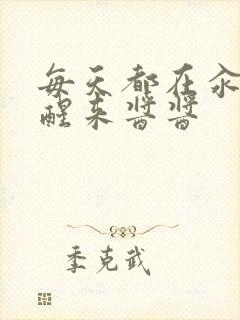 每天都在汆
醒来酱酱
季克武